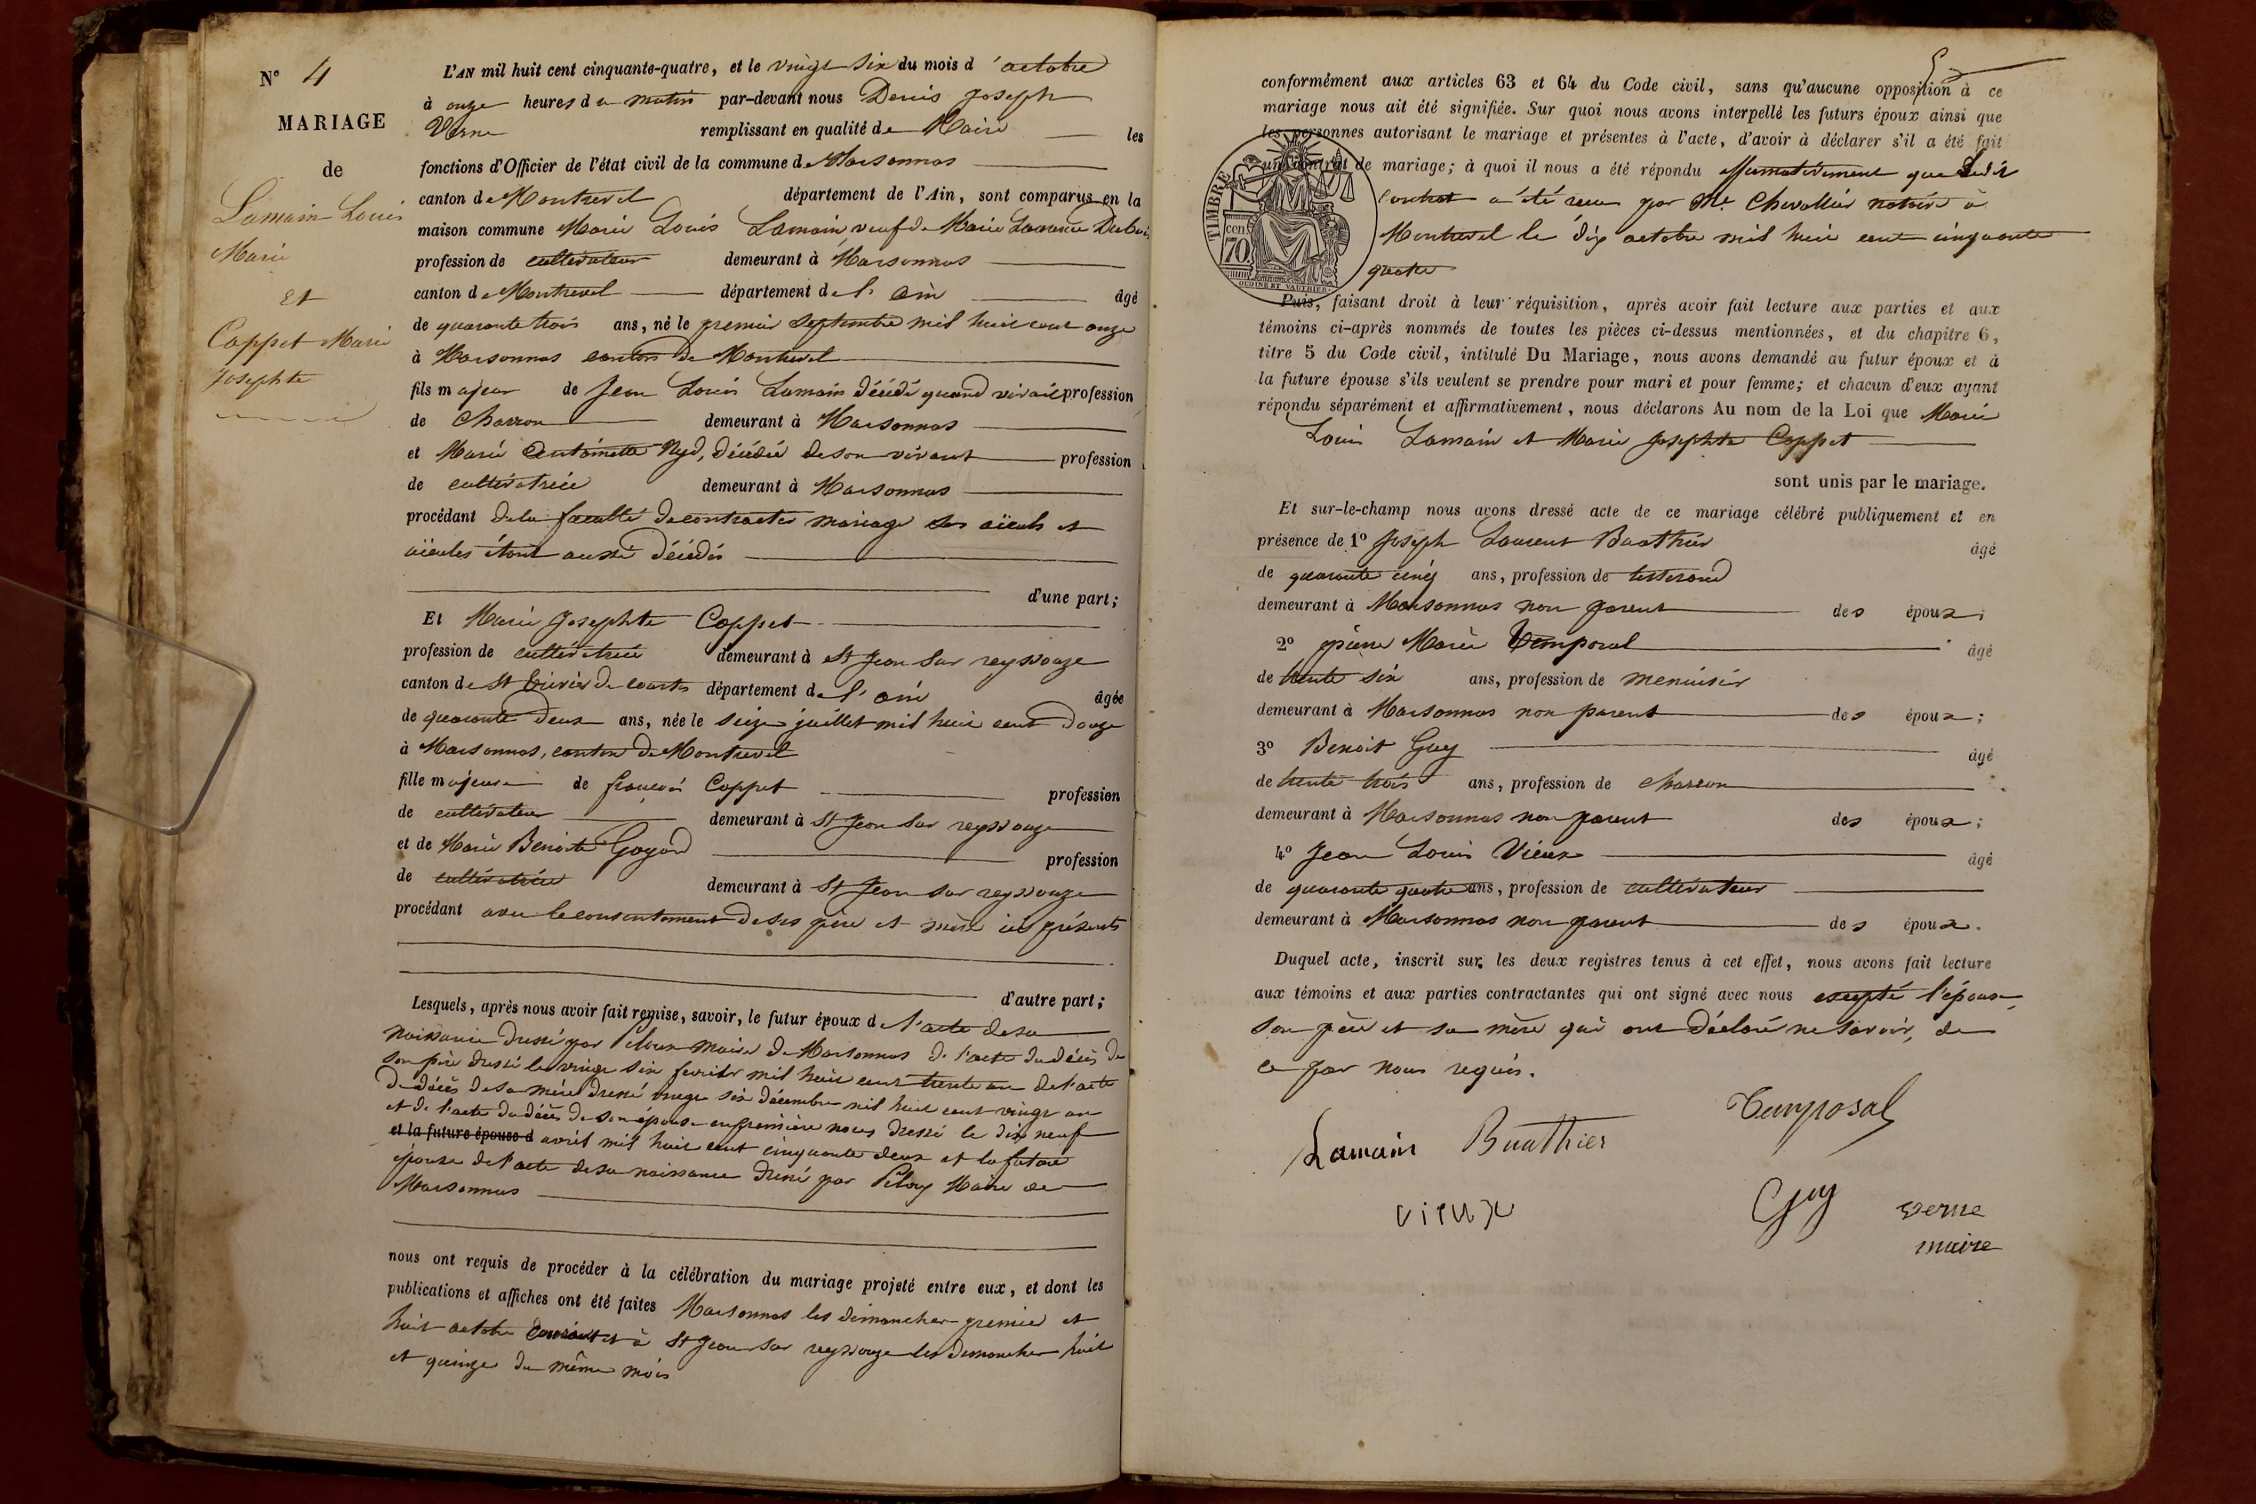 N° 4
MARIAGE
de
Lamain Louis
Marie
et
Coppet Marie
Josephte
L'AN mil huit cent cinquante-quatre, et le vingt six du mois d'octobre
à onze heures du matin par-devant nous Denis Joseph
Verne remplissant en qualité de Maire les
fonctions d'Officier de l'état civil de la commune de Marsonnas
canton de Montrevel département de l'Ain, sont comparus en la
maison commune Marie Louis Lamain, veuf de Marie Laurence
profession de cultivateur demeurant à Marsonnas
canton de Montrevel département de l'ain âgé
de quarante trois ans, né le premier septembre mil huit cent onze
à Marsonnas canton de Montrevel
fils majeur de Jean Louis Lamain décédé quand vivait profession
de charron demeurant à Marsonnas
et Marie Antoinette Nyd, décédée de son vivant profession
de cultivatrice demeurant à Marsonnas
procédant de la faculté de contracter mariage ses aïeuls et
aïeules étant aussi décédés
d'une part;
Et Marie Josephte Coppet
profession de cultivatrice demeurant à St Jean sur reyssouze
canton de St trivier de courtes département de l'ain âgée
de quarante deux ans, née le seize juillet mil huit cent douze
à Marsonnas, canton de Montrevel
fille majeure de françois Coppet profession
de cultivateur demeurant à St Jean sur reyssouze
et de Marie Benoite Goyard profession
de cultivatrice demeurant à St Jean sur reyssouze
procédant avec le consentement de ses père et mère ici présents
d'autre part;
Lesquels, après nous avoir fait remise, savoir, le futur époux de l'acte de sa
naissance dressé par maire de Marsonnas de l'acte du décès de
son père dressé le vingt six fevrier mil huit cent trente un de l'acte
de décès de sa mère dressé vingt six decembre mil huit cent vingt un
et de l'acte du décès de son épouse en première noces dressé le dix neuf
et la future épouse d avril mil huit cent cinquante deux et la future
épouse de l'acte de sa naissance dressé par Maire de
Marsonnas
nous ont requis de procéder à la célébration du mariage projeté entre eux, et dont les
publications et affiches ont été faites Marsonnas les dimanches premier et
huit octobre courant et à St Jean sur reyssouze les dimanches huit
et quinze du même mois
5
conformément aux articles 63 et 64 du Code civil, sans qu'aucune opposition à ce
mariage nous ait été signifiée. Sur quoi nous avons interpellé les futurs époux ainsi que
les personnes autorisant le mariage et présentes à l'acte, d'avoir à déclarer s'il a été fait
un contrat de mariage; à quoi il nous a été répondu affirmativement que ledit
contrat a été reçu par Me Chevallier notaire à
Montrevel le dix octobre mil huit cent cinquante
quatre
TIMBRE
70 cent
OUDINE ET VAUTHIER
Puis, faisant droit à leur réquisition, après avoir fait lecture aux parties et aux
témoins ci-après nommés de toutes les pièces ci-dessus mentionnées, et du chapitre 6,
titre 5 du Code civil, intitulé Du Mariage, nous avons demandé au futur époux et à
la future épouse s'ils veulent se prendre pour mari et pour femme; et chacun d'eux ayant
répondu séparément et affirmativement, nous déclarons Au nom de la Loi que Marie
Louis Lamain et Marie Josephte Coppet
sont unis par le mariage.
Et sur-le-champ nous avons dressé acte de ce mariage célébré publiquement et en
présence de 1° Joseph Laurent Buathier âgé
de quarante cinq ans, profession de tisserand
demeurant à Marsonnas non parent des époux;
2° pierre Marie Temporal âgé
de trente six ans, profession de menuisier
demeurant à Marsonnas non parent des époux;
3° Benoit Guy âgé
de trente trois ans, profession de charron
demeurant à Marsonnas non parent des époux;
4° Jean Louis Vieux âgé
de quarante quatre ans, profession de cultivateur
demeurant à Marsonnas non parent des époux.
Duquel acte, inscrit sur les deux registres tenus à cet effet, nous avons fait lecture
aux témoins et aux parties contractantes qui ont signé avec nous excepté l'épouse
son père et sa mère qui ont déclaré ne savoir, de
ce par nous requis.
Temposal
Lamain Buathier
vieux Guy verne
maire